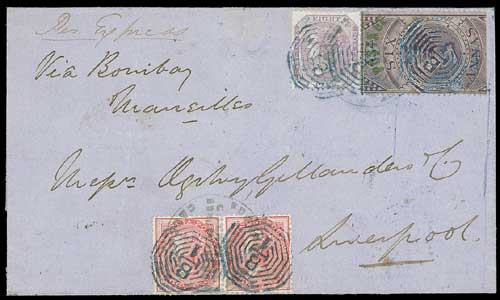 Per Express
Via Bombay
Marseilles
Messrs Ogilvy Gillanders & Co
Liverpool.